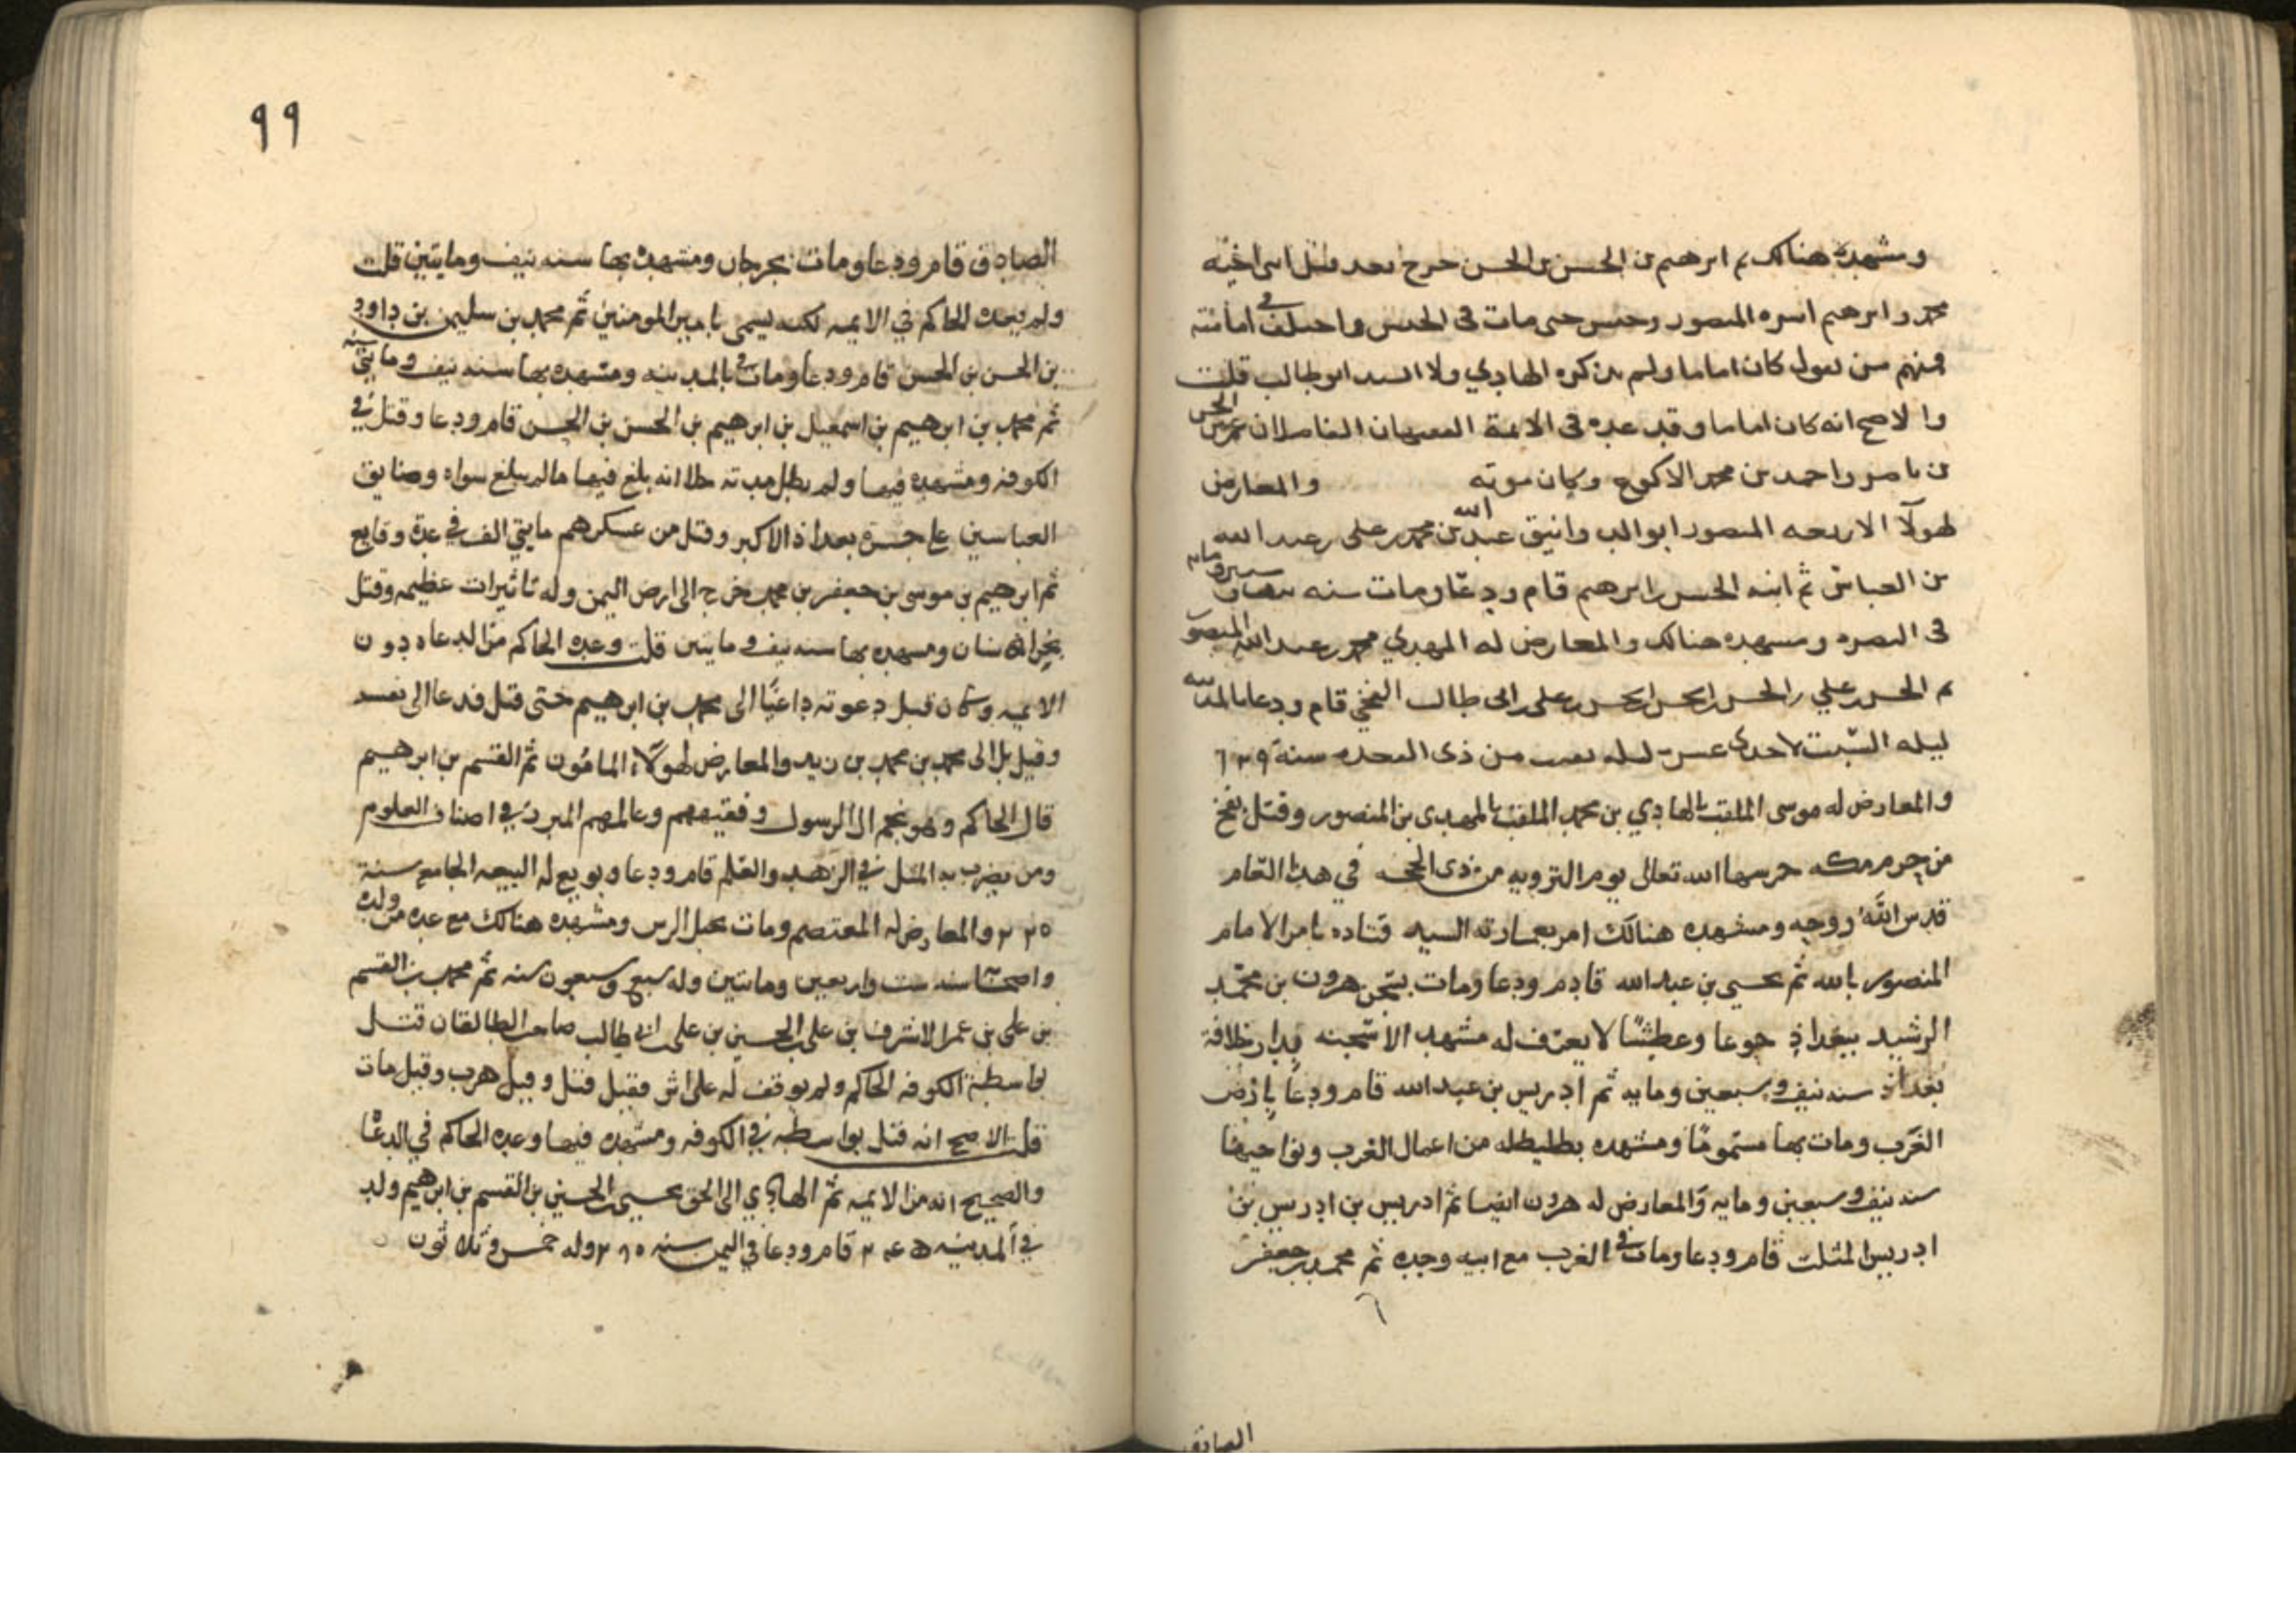 ومشهده هنالك ثم ابرهيم بن الحسن بن الحسن خرج بعد قتل ابني اخيه
محمد وابرهيم اسره المنصور وحبس حتى مات في الحبس واختلف في امامته
فمنهم من يقول كان اماما ولم يذكره الهادي ولا السيد ابو طالب قلت
والاصح انه كان اماما وقد عده في الايمة الفقيهان الفاضلان الحسن
بن ناصر واحمد بن محمد الاكوع وكان موته والمعارض
لهولآ الاربعه المنصور ابو الدوانيق عبد الله بن محمد بن علي بن عبد الله
بن العباس ثم ابنه الحسن بن ابرهيم قام ودعا ومات سنه
في البصره ومشهده هنالك والمعارض له المهدي محمد بن عبد الله المنصور
ثم الحسين بن علي بن الحسن بن الحسن بن الحسن بن علي بن ابي طالب الفخي قام ودعا بالمدينه
ليله السبت لاحدى عشر ليله بقيت من ذي القعده سنة ٦٣٩
والمعارض له موسى الملقب بالهادي بن محمد الملقب بالمهدي بن المنصور وقتل بفخ
من حرم مكه حرسها الله تعالى يوم الترويه من ذي الحجه في هذا العام
قدس الله روحه ومشهده هنالك امر بعمارته السيد قتاده بامر الامام
المنصور بالله ثم يحيى بن عبد الله قام ودعا ومات بسجن هرون بن محمد
الرشيد ببغداذ جوعا وعطشا لا يعرف له مشهد الا سجنه بدار خلافة
بغداذ سنه نيف وسبعين ومايه ثم ادريس بن عبد الله قام ودعا بارض
الغرب ومات بها مسموما ومشهده بطليطله من اعمال الغرب ونواحيها
سنه نيف وسبعين ومايه والمعارض له هرون ايضا ثم ادريس بن ادريس بن
ادريس المثلث قام ودعا ومات في الغرب مع ابيه وجده ثم محمد بن جعفر
الصادق
٩٩
الصادق قام ودعا ومات بجرجان ومشهده بها سنه نيف ومايتين قلت
ولم يعده الحاكم في الايمه لكنه يسمى بامير المومنين ثم محمد بن سليمن بن داود
بن الحسن بن الحسن قام ودعا ومات في بالمدينه ومشهده بها سنه نيف ومايتي سنه
ثم محمد بن ابرهيم بن اسمعيل بن ابرهيم بن الحسن بن الحسن قام ودعا وقتل في
الكوفه ومشهده فيها ولم يطل مدته خلا انه بلغ فيها ما لم يبلغ سواه وضايق
العباسين على جسرة بغداذ الاكبر وقتل من عسكرهم مايتي الف في عدة وقايع
ثم ابرهيم بن موسى بن جعفر بن محمد خرج الى ارض اليمن وله تاثيرات عظيمه وقتل
بخراسان ومشهده بها سنه نيف ومايتين قلت وعده الحاكم من الدعاه دون
الايمه وكان قبل دعوته داعيًا الى محمد بن ابرهيم حتى قتل فدعا الى نفسه
وقيل بل الى محمد بن محمد بن زيد والمعارض لهولآء المامون ثم القسم بن ابرهيم
قال الحاكم وهو نجم ال الرسول وفقيههم وعالمهم المبرز في اصناف العلوم
ومن يضرب به المثل في الزهد والعلم قام ودعا وبويع له البيعه الجامع سنة
٢٢٥ والمعارض له المعتصم ومات بجبل الرس ومشهده هنالك مع عده من ولده
سنه ست واربعين ومايتين وله سبع وسبعون سنه ثم محمد بن القسم
بن علي بن عمر الاشرف بن علي بن الحسين بن علي بن ابي طالب صاحب الطالقان قتل
بواسطة الكوفه الحاكم ولم يوقف له على اثر فقيل قتل وقيل هرب وقيل مات
قلت الاصح انه قتل بواسطه في الكوفه ومشهده فيها وعده الحاكم في الدعا
والصحيح انه من الايمه ثم الهادي الى الحق يحيى بن الحسين بن القسم بن ابرهيم ولد
في المدينه ٢٤٥ قام ودعا في اليمن سنه ٢٨٥ وله خمس وثلاثون